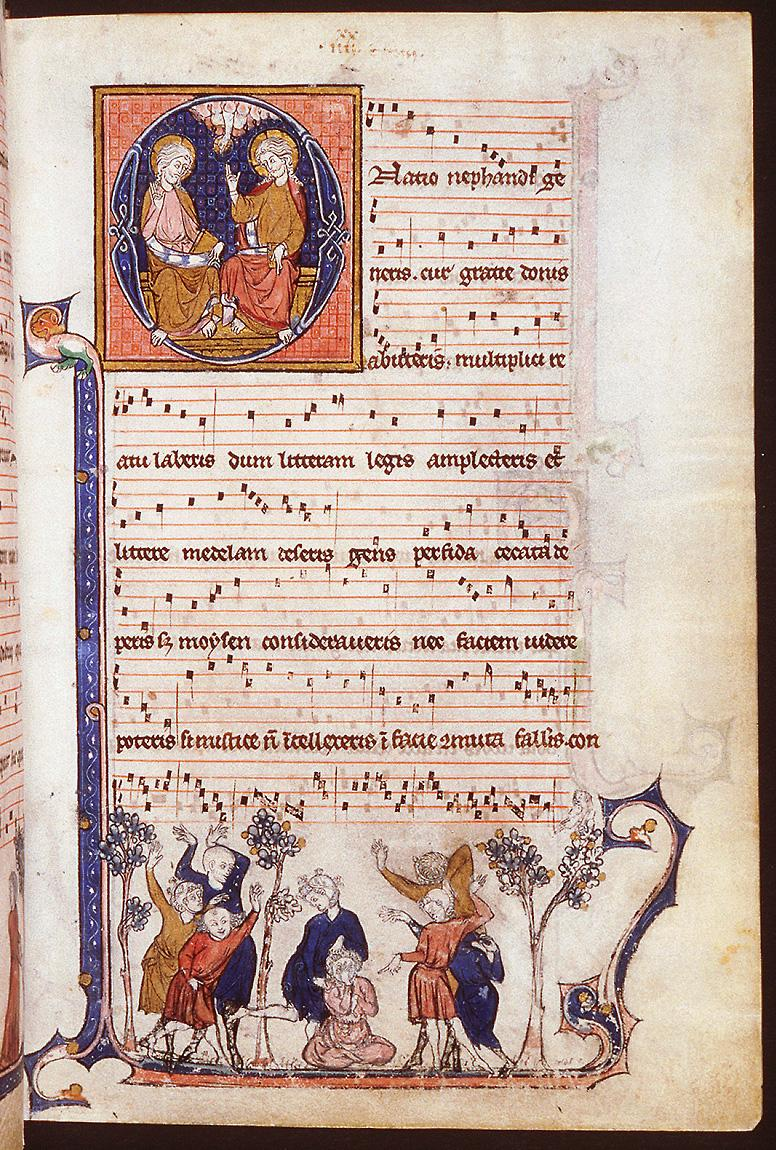 Natio nephandi ge
neris. cur gratie donis
abuteris. multiplici re
atu laberis dum litteram legis amplecteris et
littere medelam deseris gens perfida cecata de
peris si moysen consideraveris nec faciem videre
poteris si mistice in facie fallis con